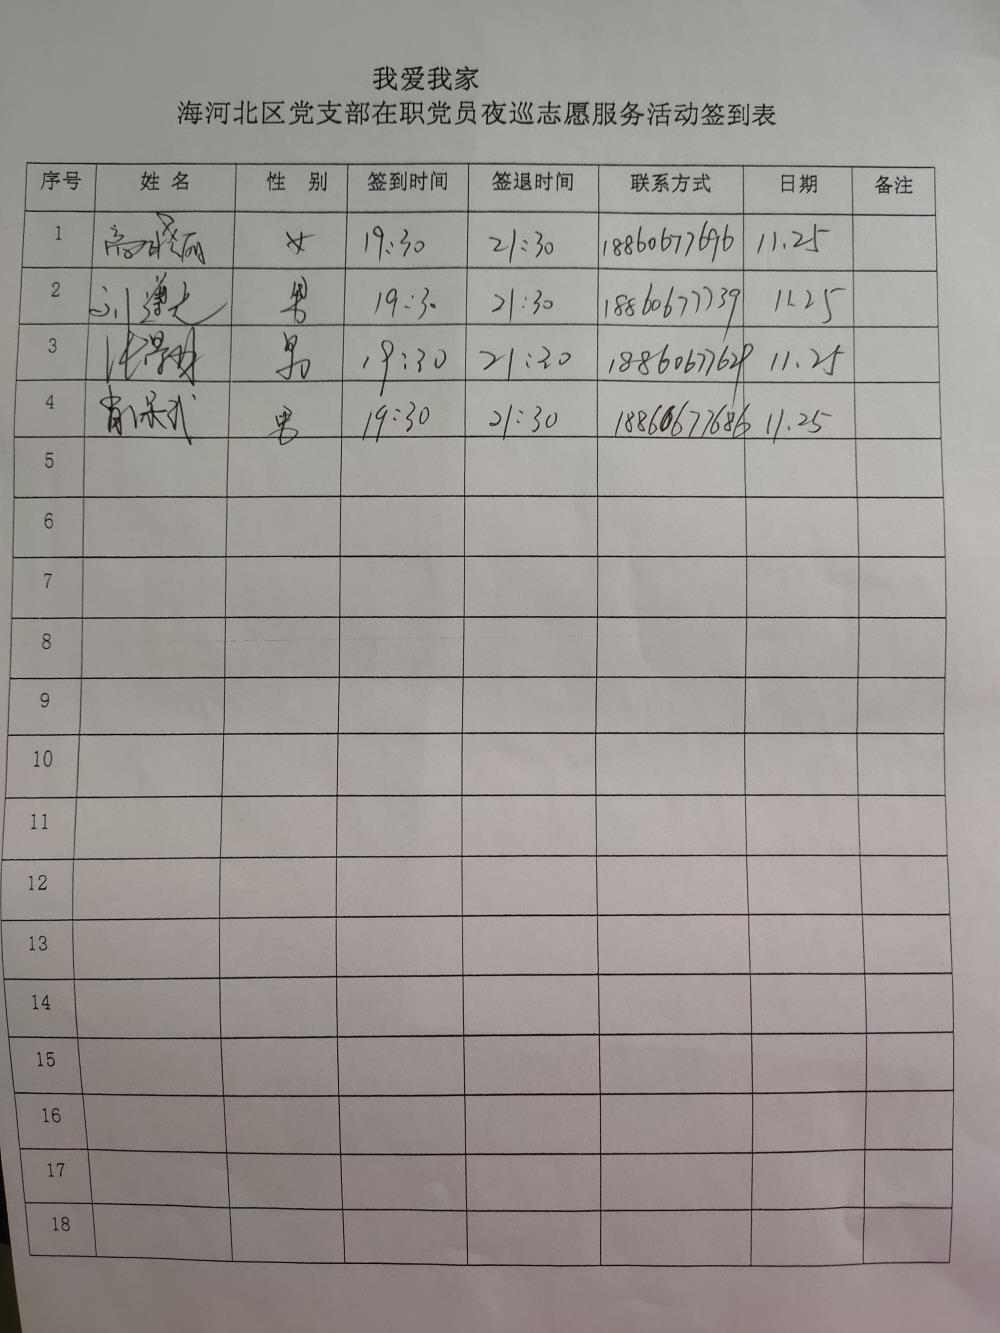 我爱我家
海河北区党支部在职党员夜巡志愿服务活动签到表
序号 姓名 性别 签到时间 签退时间 联系方式 日期 备注
1 女 19:30 21:30 18860677696 11.25
2 刘遵 男 19:30 21:30 18860677739 11.25
3 男 19:30 21:30 18860677629 11.25
4 肖保武 男 19:30 21:30 18860677686 11.25
5
6
7
8
9
10
11
12
13
14
15
16
17
18